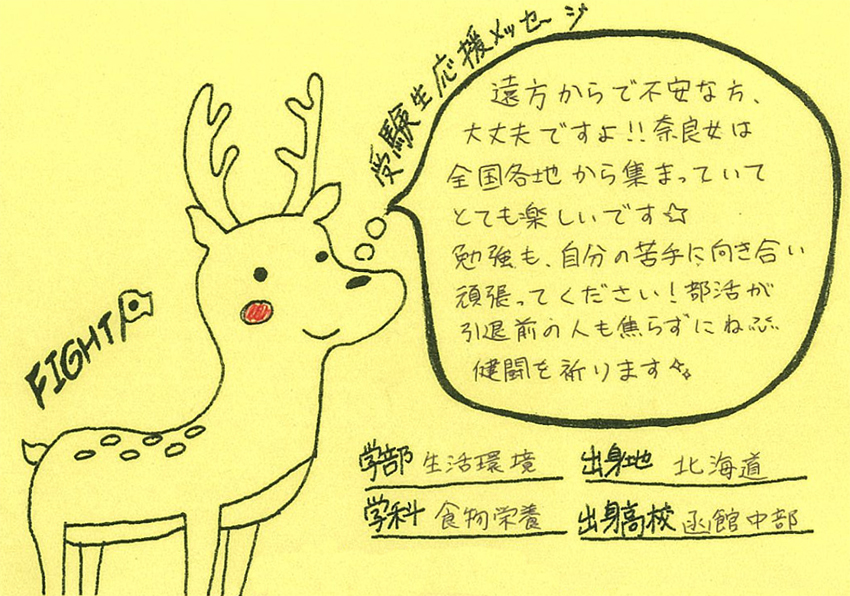 受験生応援メッセージ
遠方からで不安な方、
大丈夫ですよ!!奈良女は
全国各地から集まっていて
とても楽しいです☆
勉強も、自分の苦手に向き合い
頑張ってください!部活が
引退前の人も焦らずにね
健闘を祈ります
FIGHT!
学部 生活環境
出身地 北海道
学科 食物栄養
出身高校 函館中部